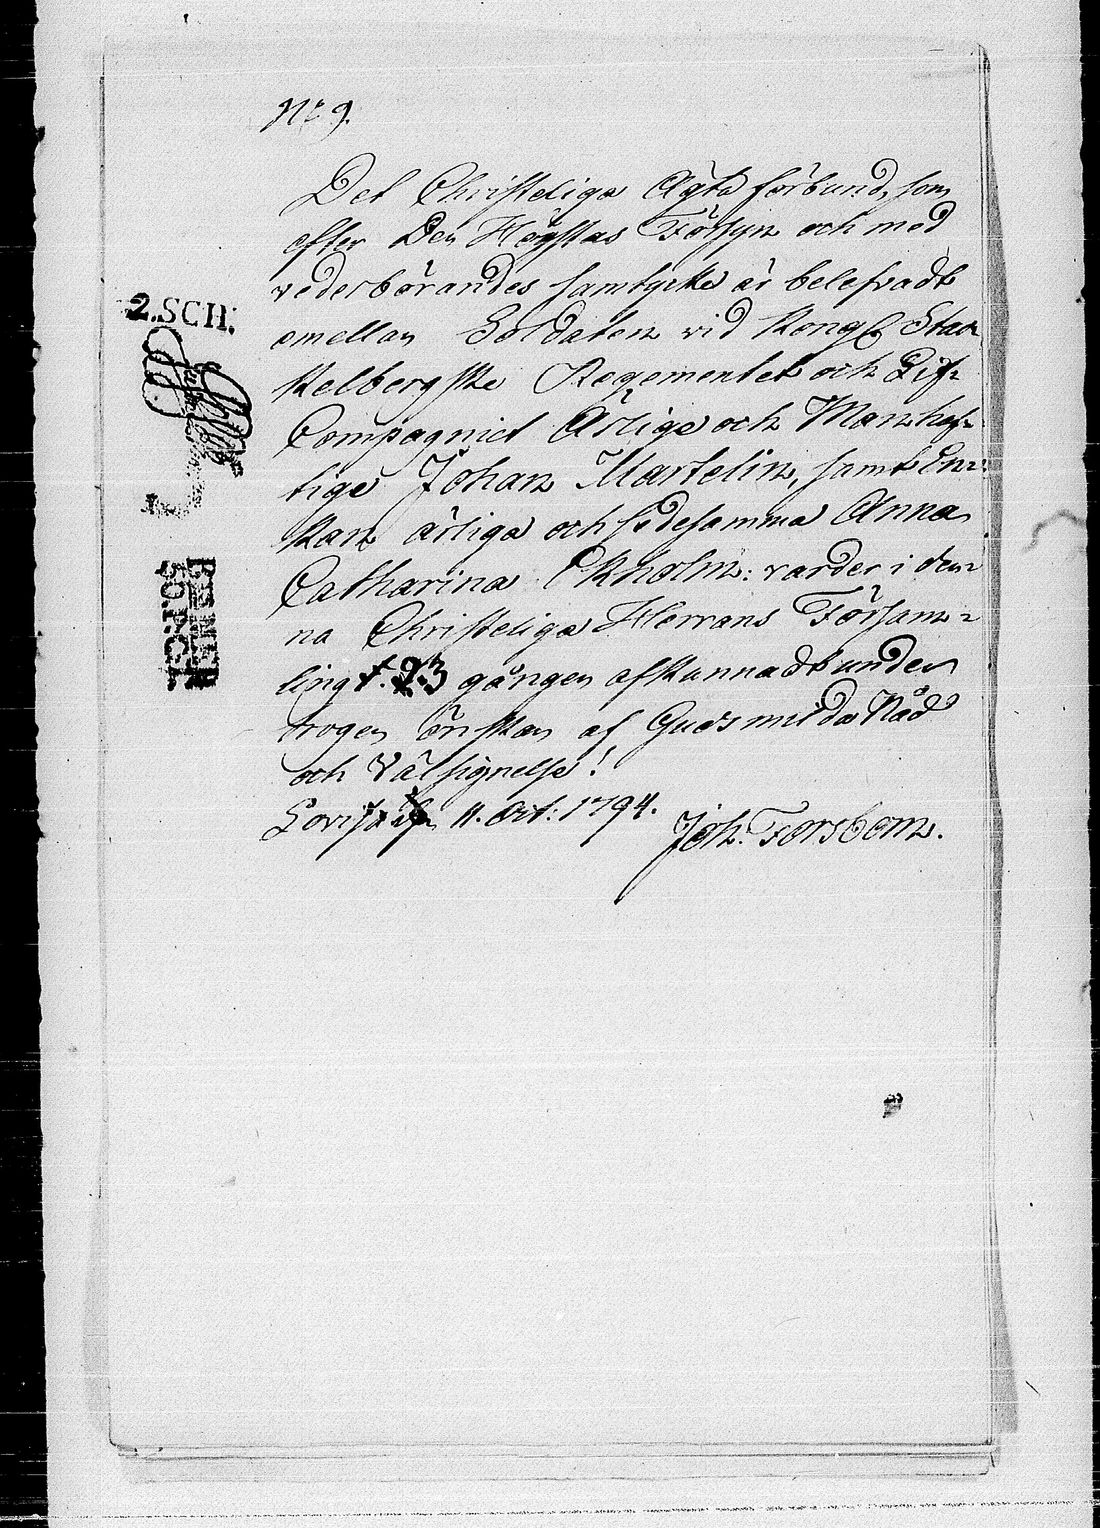 N:o 9.
Det Christeliga Ägta förbund, som
efter Den Högstas Försyn och med
vederbörandes samtycke är belefvadt
2.SCH.
emellan Soldaten vid Kongl. Stac
kelbergske Regementet och Lif-
Compagniet Ärlige och Manhaf-
tige Johan Martelin, samt En-
kan ärliga och sedesamma Anna
Catharina Ekholm: varder i den-
na Christeliga Herrans Försam-
ling 1. 2. 3 gången afkunnadt under
trogen önskan af Guds milda Nåd
och Välsignelse!
Lovisa 11. Oct: 1794.
Joh. Forsbom.